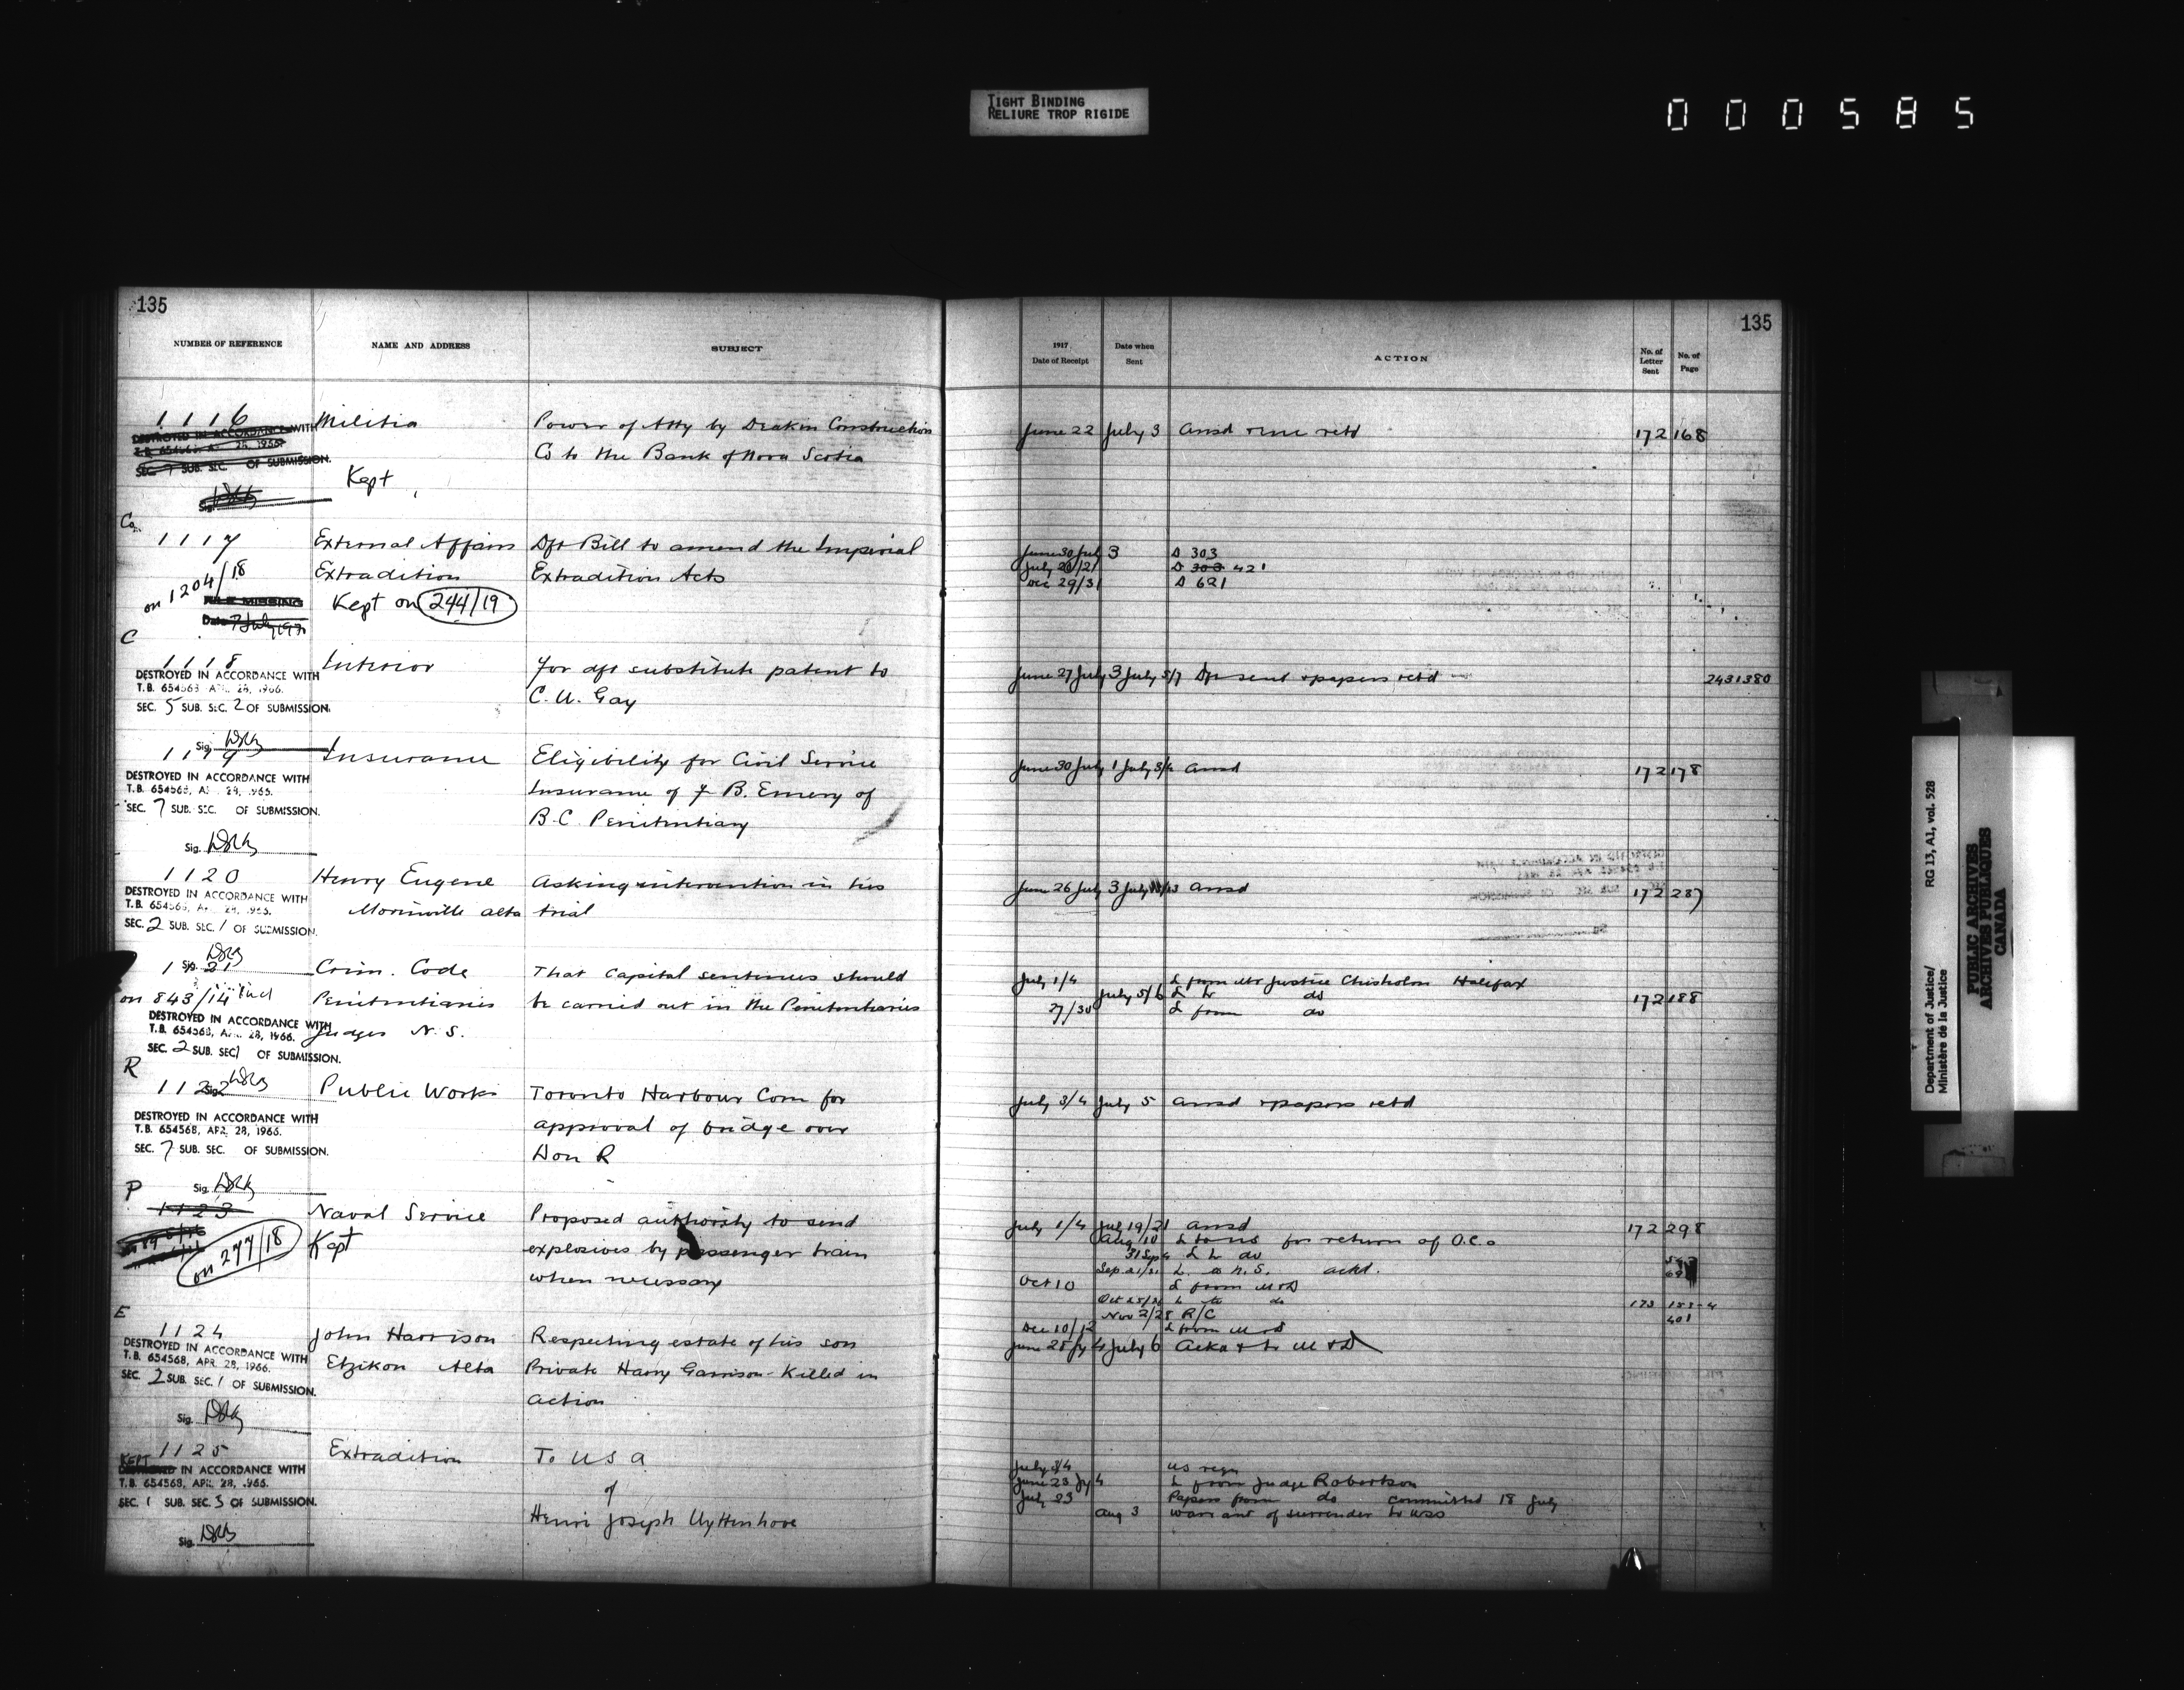 TIGHT BINDING
RELIURE TROP RIGIDE
000585
135
NUMBER OF REFERENCE NAME AND ADDRESS SUBJECT
1116 Militia Power of Atty by Deakin Construction
DESTROYED IN ACCORDANCE WITH
T.B. 654568, APR. 28, 1966.
Co to the Bank of Nova Scotia
SEC. 7 SUB. SEC. OF SUBMISSION.
Kept
Sig.
Co
1117 External Affairs Dft Bill to amend the Imperial
on 1204/18 Extradition Extradition Acts
FILE MISSING Kept on 244/19
Date 7 July 197
C
1118 Interior For dft substitute patent to
DESTROYED IN ACCORDANCE WITH
T.B. 654568 APR. 28, 1966.
C. U. Gay
SEC. 5 SUB. SEC. 2 OF SUBMISSION.
Sig.
1119 Insurance Eligibility for Civil Service
DESTROYED IN ACCORDANCE WITH
T.B. 654568, APR. 28, 1966.
Insurance of F B. Emery of
SEC. 7 SUB. SEC. OF SUBMISSION.
B.C. Penitentiary
Sig.
1120 Henry Eugene Asking intervention in his
DESTROYED IN ACCORDANCE WITH
T.B. 654568, APR. 28, 1966.
Morinville Alta trial
SEC. 2 SUB. SEC. 1 OF SUBMISSION.
Sig.
1121 Crim. Code That capital sentences should
on 843/14 Penitentiaries be carried out in the Penitentiaries
DESTROYED IN ACCORDANCE WITH
T.B. 654568, APR. 28, 1966.
Judges N. S.
SEC. 2 SUB. SEC 1 OF SUBMISSION.
R
1122 Public Works Toronto Harbour Com for
Sig.
DESTROYED IN ACCORDANCE WITH
T.B. 654568, APR. 28, 1966.
approval of bridge over
SEC. 7 SUB. SEC. OF SUBMISSION.
Don R
Sig.
P
1123 Naval Service Proposed authority to send
on 277/18 Kept explosives by passenger train
when necessary
E
1124 John Harrison Respecting estate of his son
DESTROYED IN ACCORDANCE WITH
T.B. 654568, APR. 28, 1966.
Etzikon Alta Private Harry Garrison - Killed in
SEC. 2 SUB. SEC. 1 OF SUBMISSION.
action
Sig.
1125 Extradition To U S A
KEPT
DESTROYED IN ACCORDANCE WITH
T.B. 654568, APR. 28, 1966.
of
SEC. 1 SUB. SEC. 3 OF SUBMISSION.
Henri Joseph Uyttenhove
Sig.
135
1917 Date of Receipt Date when Sent ACTION No. of Letter Sent No. of Page
June 22 July 3 Ansd retd 172 168
June 30 July 3 D 303
July 20/21 D 303 421
Dec 29/31 D 621
June 27 July 3 July 5/7 Dft sent & papers retd 2431380
June 30 July 1 July 3/4 Ansd 172 178
June 26 July 3 July Ansd 172 287
July 1/4 L from Mr Justice Chisholm Halifax
July 5/6 L to do 172 188
27/30 L from do
July 3/4 July 5 Ansd & papers retd
July 1/4 Jul 19/21 Ansd 172 298
Aug 10 L to N S for return of O.C.
31 Sep 4 L to do
Sep 21/21 L to N.S. ackd.
Oct 10 L from M & D
L to do 173
Nov 2/28 R/C 401
Dec 10/12 L from M & D
June 25 Jy 4 July 6 Ackd & to M & D
July 3/4 US reqn
June 23 Jy 4 L from Judge Robertson
July 23 Papers from do committed 18 July
Aug 3 Warrant of surrender to USO
Department of Justice/
Ministère de la Justice
RG 13, A1, vol. 528
PUBLIC ARCHIVES
ARCHIVES PUBLIQUES
CANADA